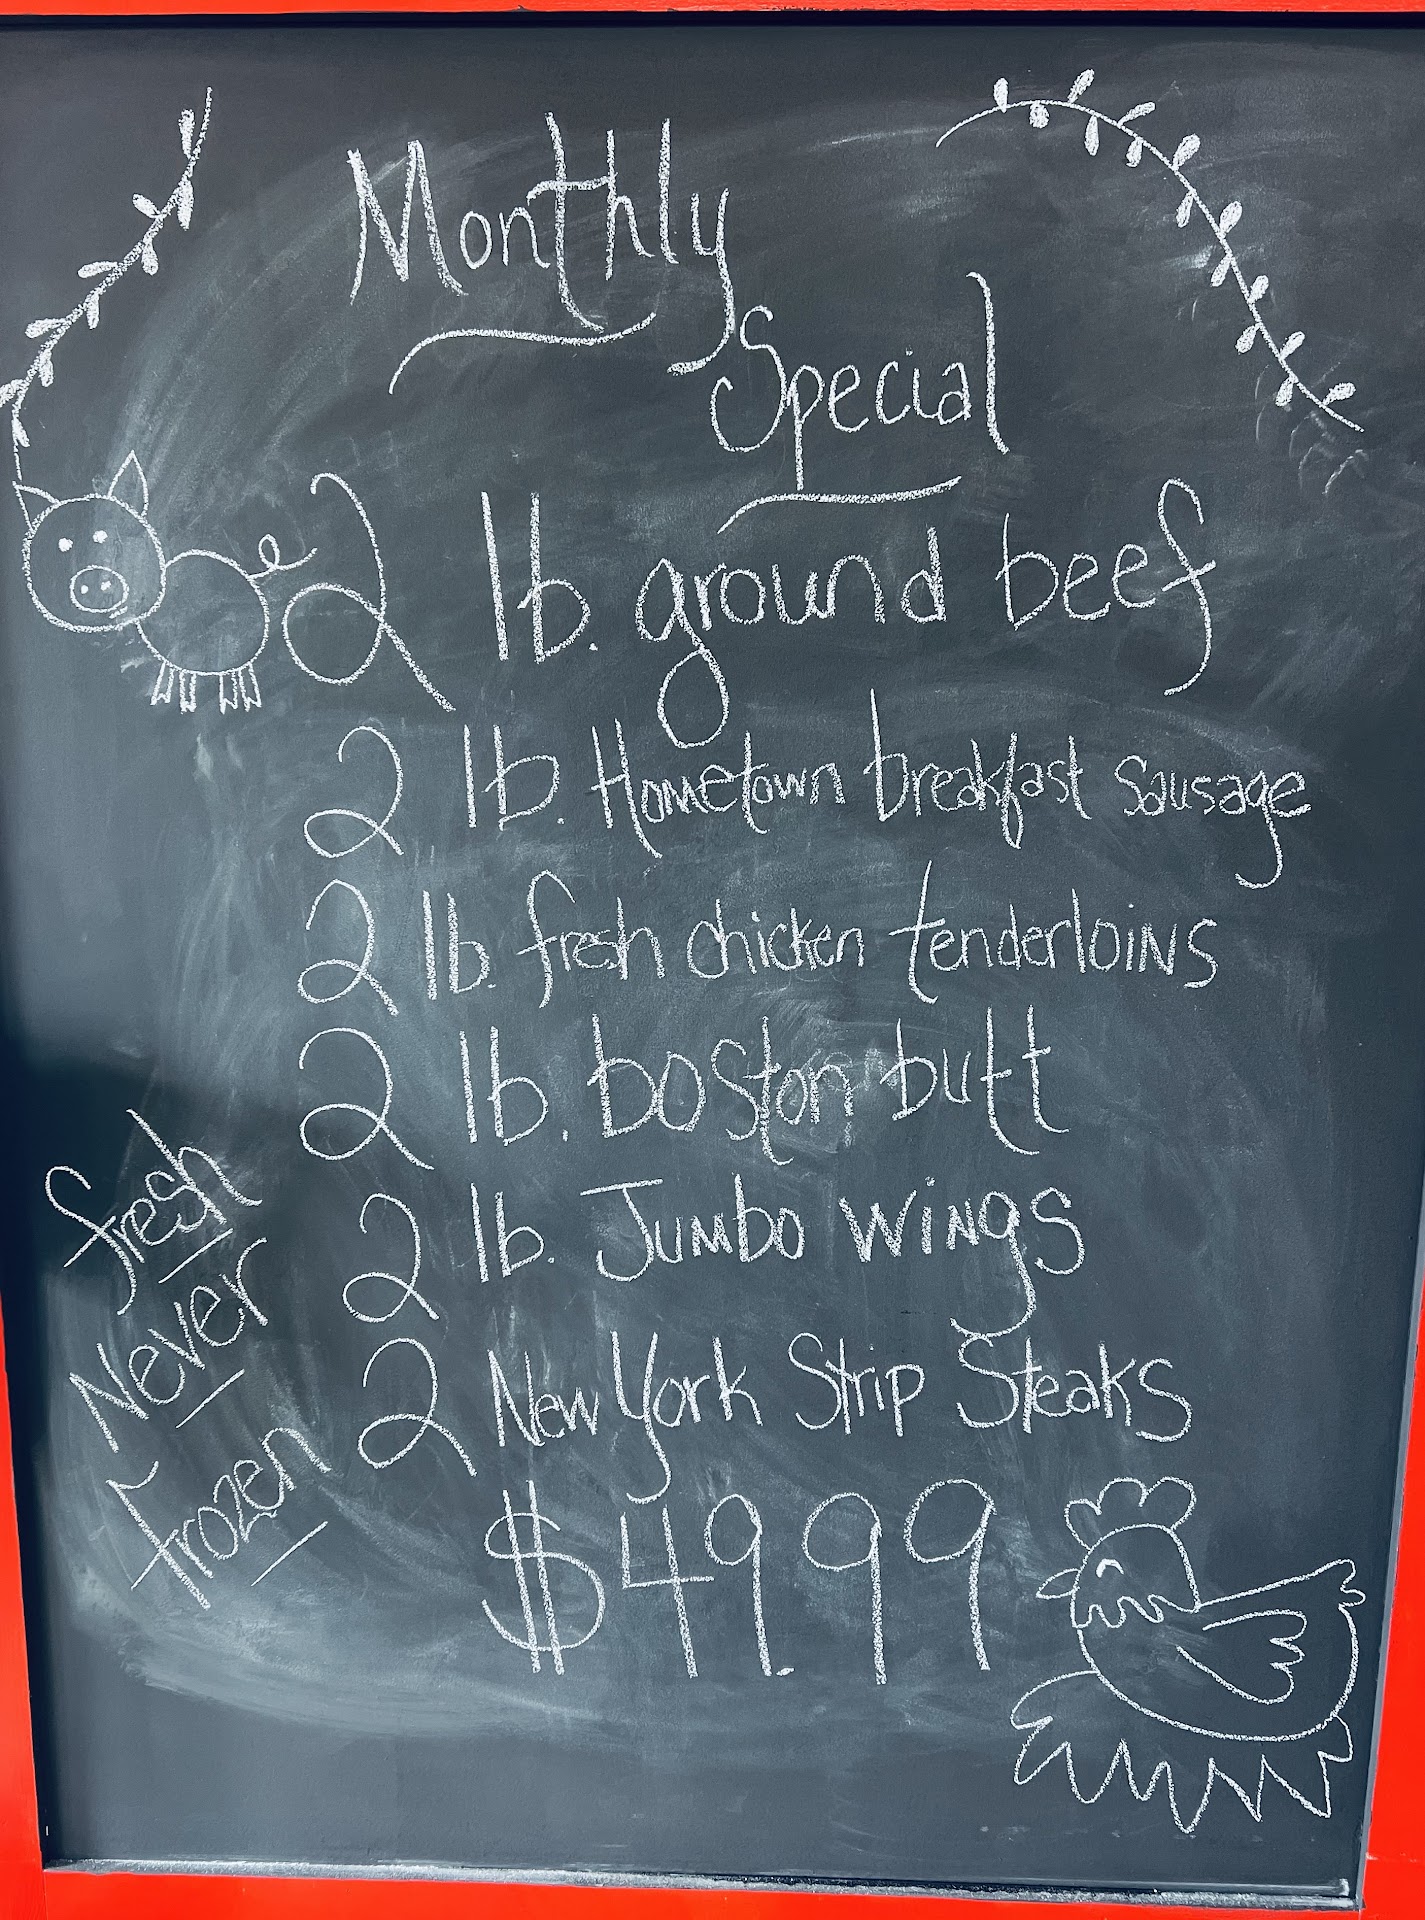 Monthly
Special
2 lb. ground beef
2 lb. Hometown breakfast sausage
2 lb. fresh chicken tenderloins
2 lb. boston butt
2 lb. Jumbo wings
2 New York Strip Steaks
$49.99
fresh
Never
Frozen